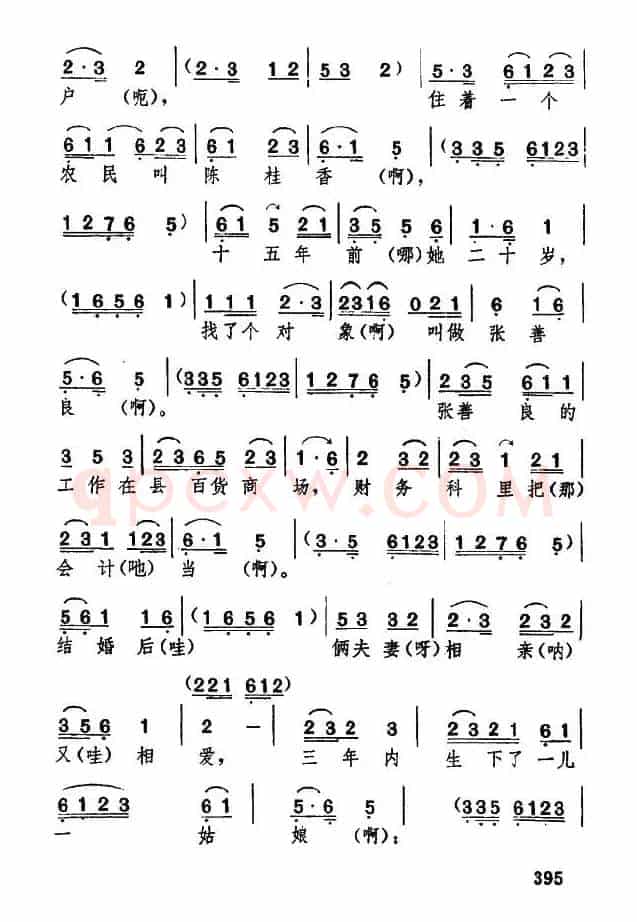 2·3 2 | (2·3 12 | 53 2) | 5·3 6123 |
户 (呃)， 住着一个
611 623 | 61 21 | 6·1 5 | (335 6123 |
农民叫陈桂香(啊)，
1276 5) | 61 5 21 | 35 5 6 | 2·6 1 |
十五年前(哪)她二十岁，
(1656 1) | 111 2·3 | 2316 021 | 6 16 |
找了个对象(啊)叫做张善
5·6 5 | (335 6123 | 1276 5) | 235 611 |
良(啊)。 张善良的
3 5 3 | 2365 23 | 1·6 2 | 32 23 1 21 |
工作在县百货商场，财务科里把(那)
231 123 | 6·1 5 | (3·5 6123 | 1276 5) |
会计(吔)当(啊)。
561 16 | (1656 1) | 53 32 | 2·3 232 |
结婚后(哇) 俩夫妻(呀)相亲(呐)
(221 612)
356 1 | 2 － | 232 3 | 2321 61 |
又(哇)相爱，三年内生下了一儿
6123 61 | 5·6 5 | (335 6123 |
一姑娘(啊)；
395
qpcxw.COM